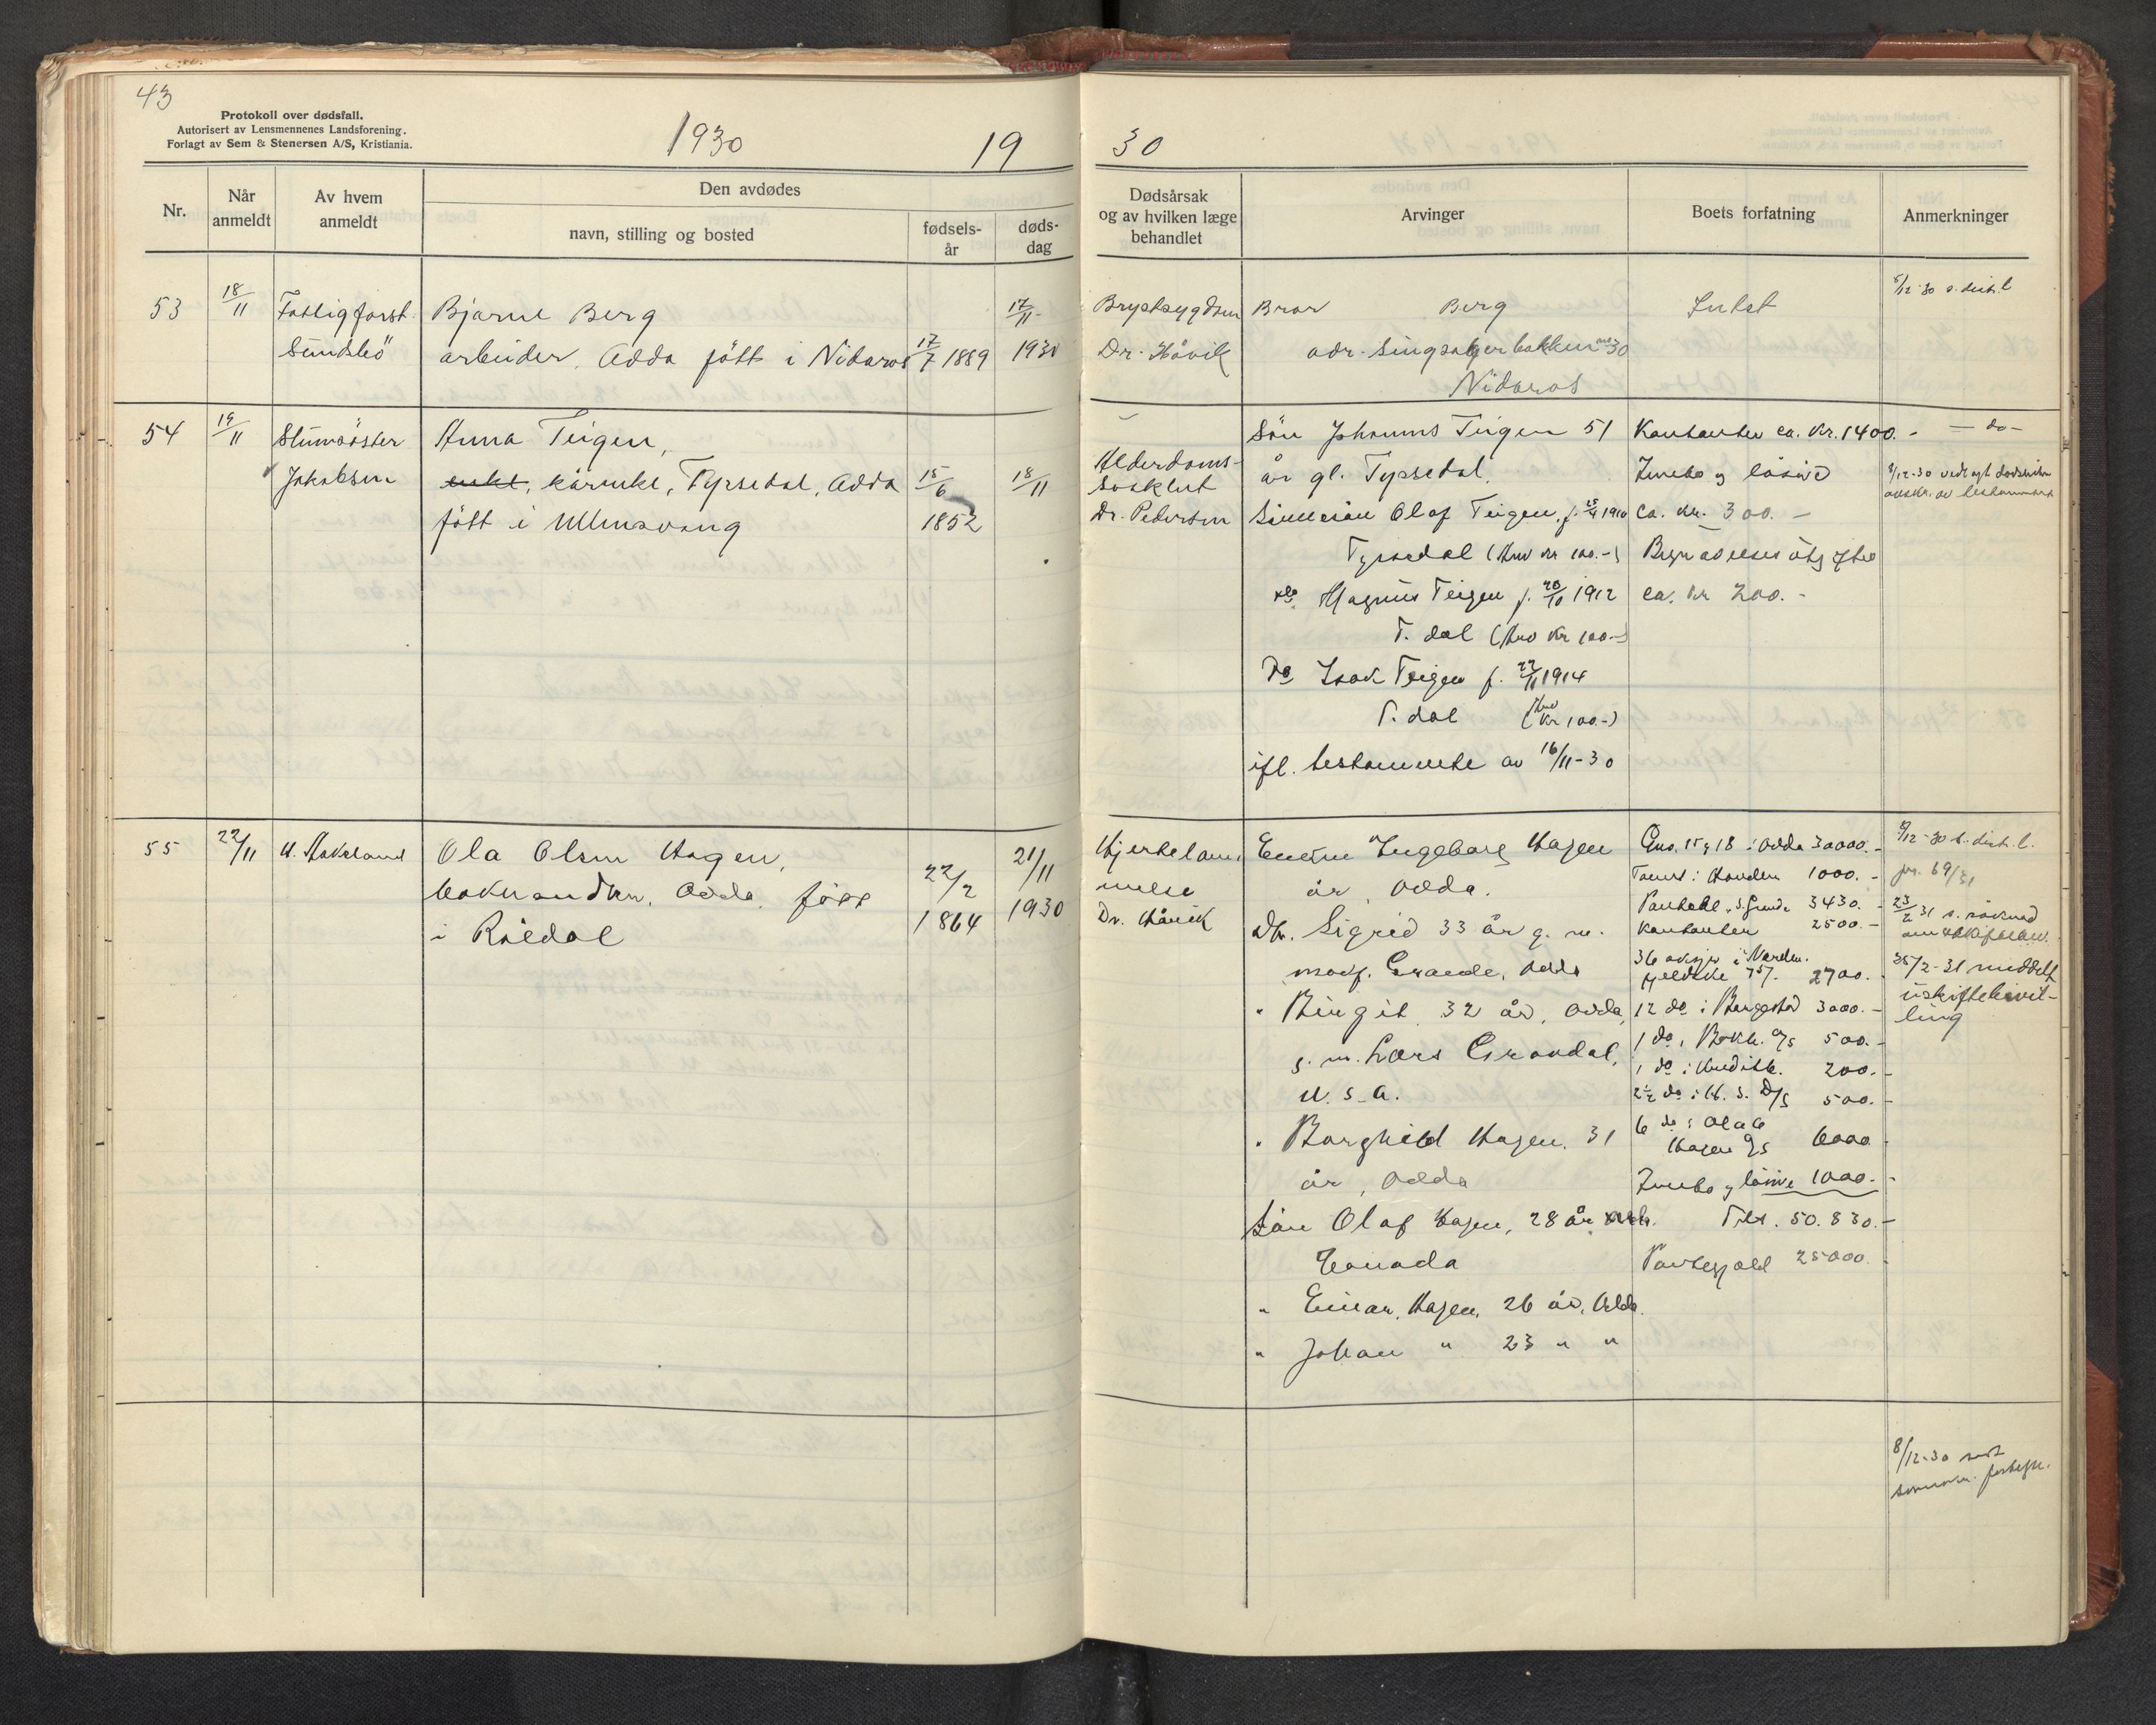 43
Protokoll over dødsfall.
Autorisert av Lensmennenes Landsforening.
Forlagt av Sem & Stenersen A/S, Kristiania.
1930
19
30
Nr.
Når
anmeldt
Av hvem
anmeldt
Den avdødes
navn, stilling og bosted
fødsels-
år
døds-
dag
Dødsårsak
og av hvilken læge
behandlet
Arvinger
Boets forfatning
Anmerkninger
53
18/11
Fatligforst.
Sundsbö
Bjarne Berg
arbeider, Odda fött i Nidaros
17/7 1889
17/11
1930
Brystsygdom
Dr. Håvik
Bror Berg
adr. Singsakerbakken 30
Nidaros
Intet
5/12-30 s. dist.l
54
19/11
Jakobsen
Anna Teigen,
enke, kårenke, Tyssedal, Odda
fött i Ullensvang
15/6
1852
18/11
Alderdoms-
svakhet
Dr. Pedersen
Sön Johannes Teigen 51
år gl. Tyssedal.
Sönnesön Olaf Teigen, f. 1910
Tyssedal (Arv kr 100.-)
do. Magnus Teigen f. 20/10 1912
T. dal (Arv Kr 100.-)
Do Isak Teigen f. 22/11 1914
T. dal (Arv Kr 100.-)
ifl. testamente av 16/11-30
Kontanter ca. Kr. 1400.-
Innbo og lösöre
ca. kr. 300.-
Begravelsesutgifter
ca. kr 200.-
- do -
55
22/11
Ola Olsen Hagen,
bokhandler, Odda, fött
i Röldal
22/2
1864
21/11
1930
Hjertelam-
melse
Dr. Håvik
Enken Ingeborg Hagen
år, Odda.
Dtr. Sigrid 33 år g. m.
Grande, Odda
" Birgit 32 år, Odda,
g. m. Lars Grondal,
U. S. A.
" Borghild Hagen, 31
år, Odda
Sön Olaf Hagen, 28 år
Canada
" Einar Hagen, 26 år, Odda.
" Johan " 23 " "
Gno. 15 g 18 i Odda 30000.-
Tomt i Handen 1000.-
3430.-
Kontanter 2500.-
36 aksjer i Norden-
2700.-
12 do i Borgestad 3000.-
1 do i A/S 500.-
1 do i Kreditb. 200.-
2½ do i H. S. D/S 500.-
6 do i Ola O
Hagen A/S 6000
Innbo g lösöre 1000.-
Tils. 50.830.-
Pantegjeld 25000.
12-30 s. dist. l.
jnr. 69/31
23/2 31 s. söknad
25/2-31 meddelt
uskiftebevil-
ling
8/12-30 sendt